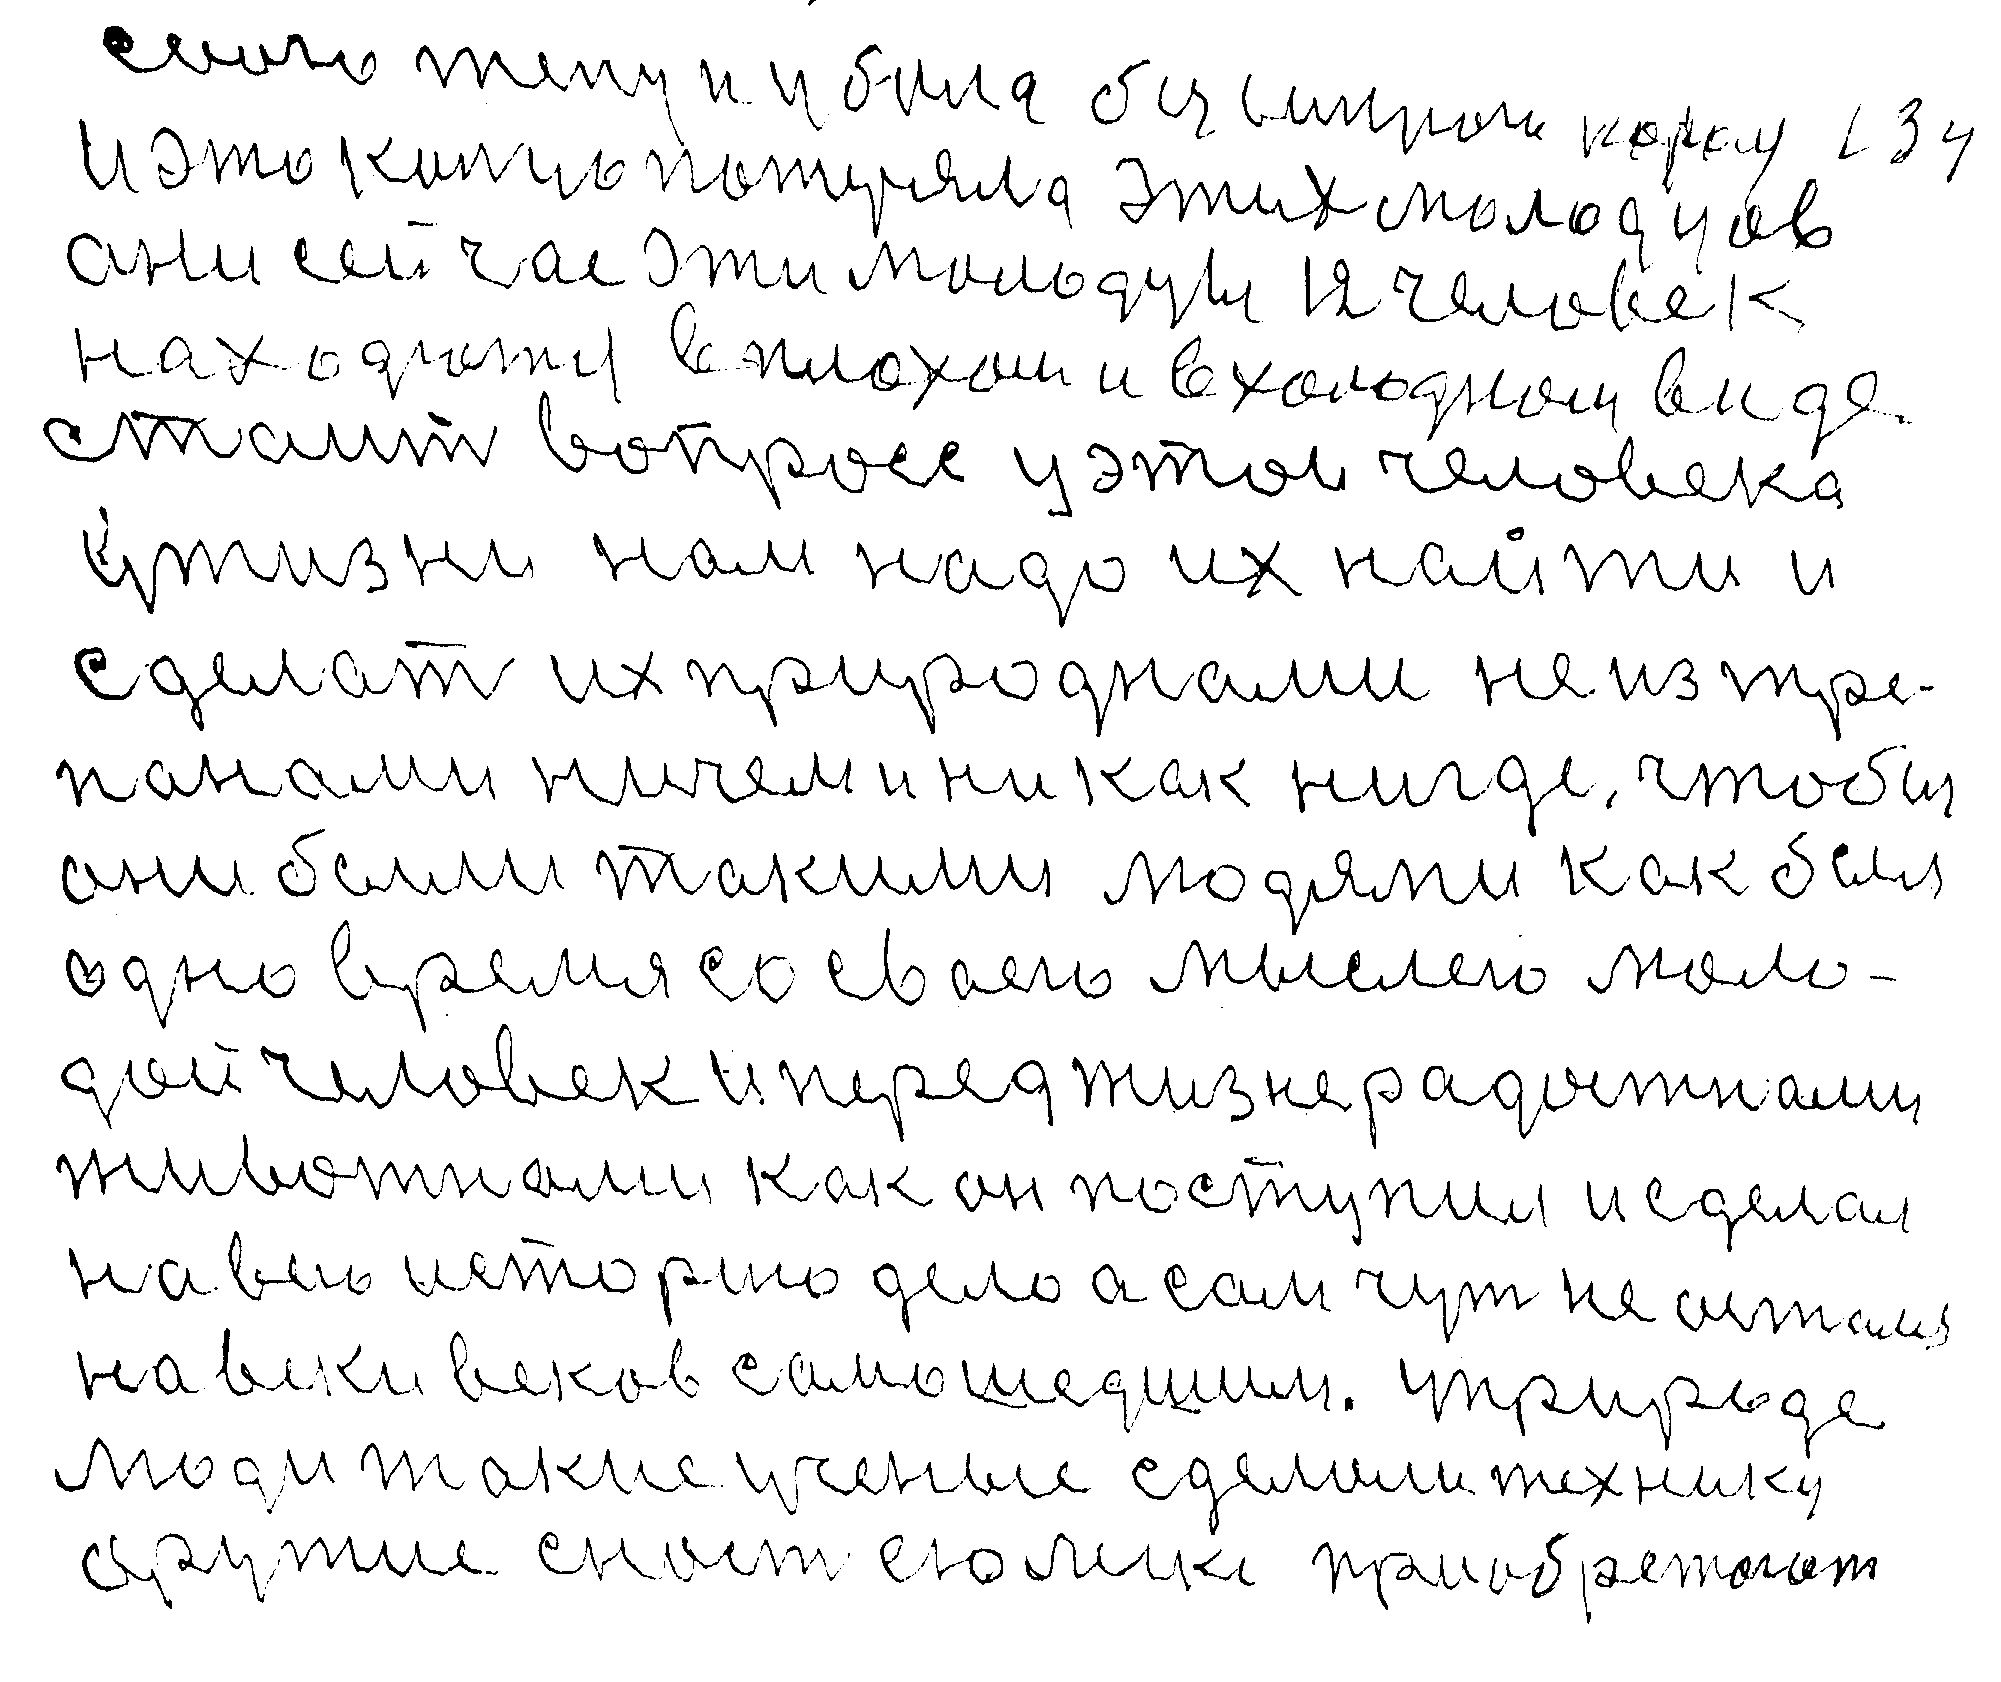 свою жену и убила быстрой 134
и это кольцо потеряла этих молодцов
они сейчас эти молодцы 12 человек
находютця в плохом и в холодном виде
стаит вопросс у этом человека
у жизни нам надо их найти и
сделат их природнами не изтре-
панами ничем и никак нигде, чтобы
они были такими людями как был
одно время со своею мыслею моло-
дой человек и перед жизнерадостнами
животнами как он поступил и сделал
на всю историю дело а сам чут не остался
на веки веков самошедшим. у природе
люди такие ученые сделали технику
аружие приобретают